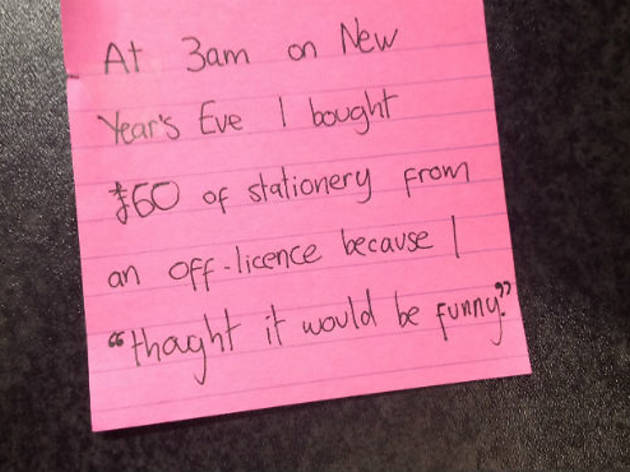 At 3am on New
Year's Eve I bought
£60 of stationery from
an off-licence because I
“thought it would be funny.”